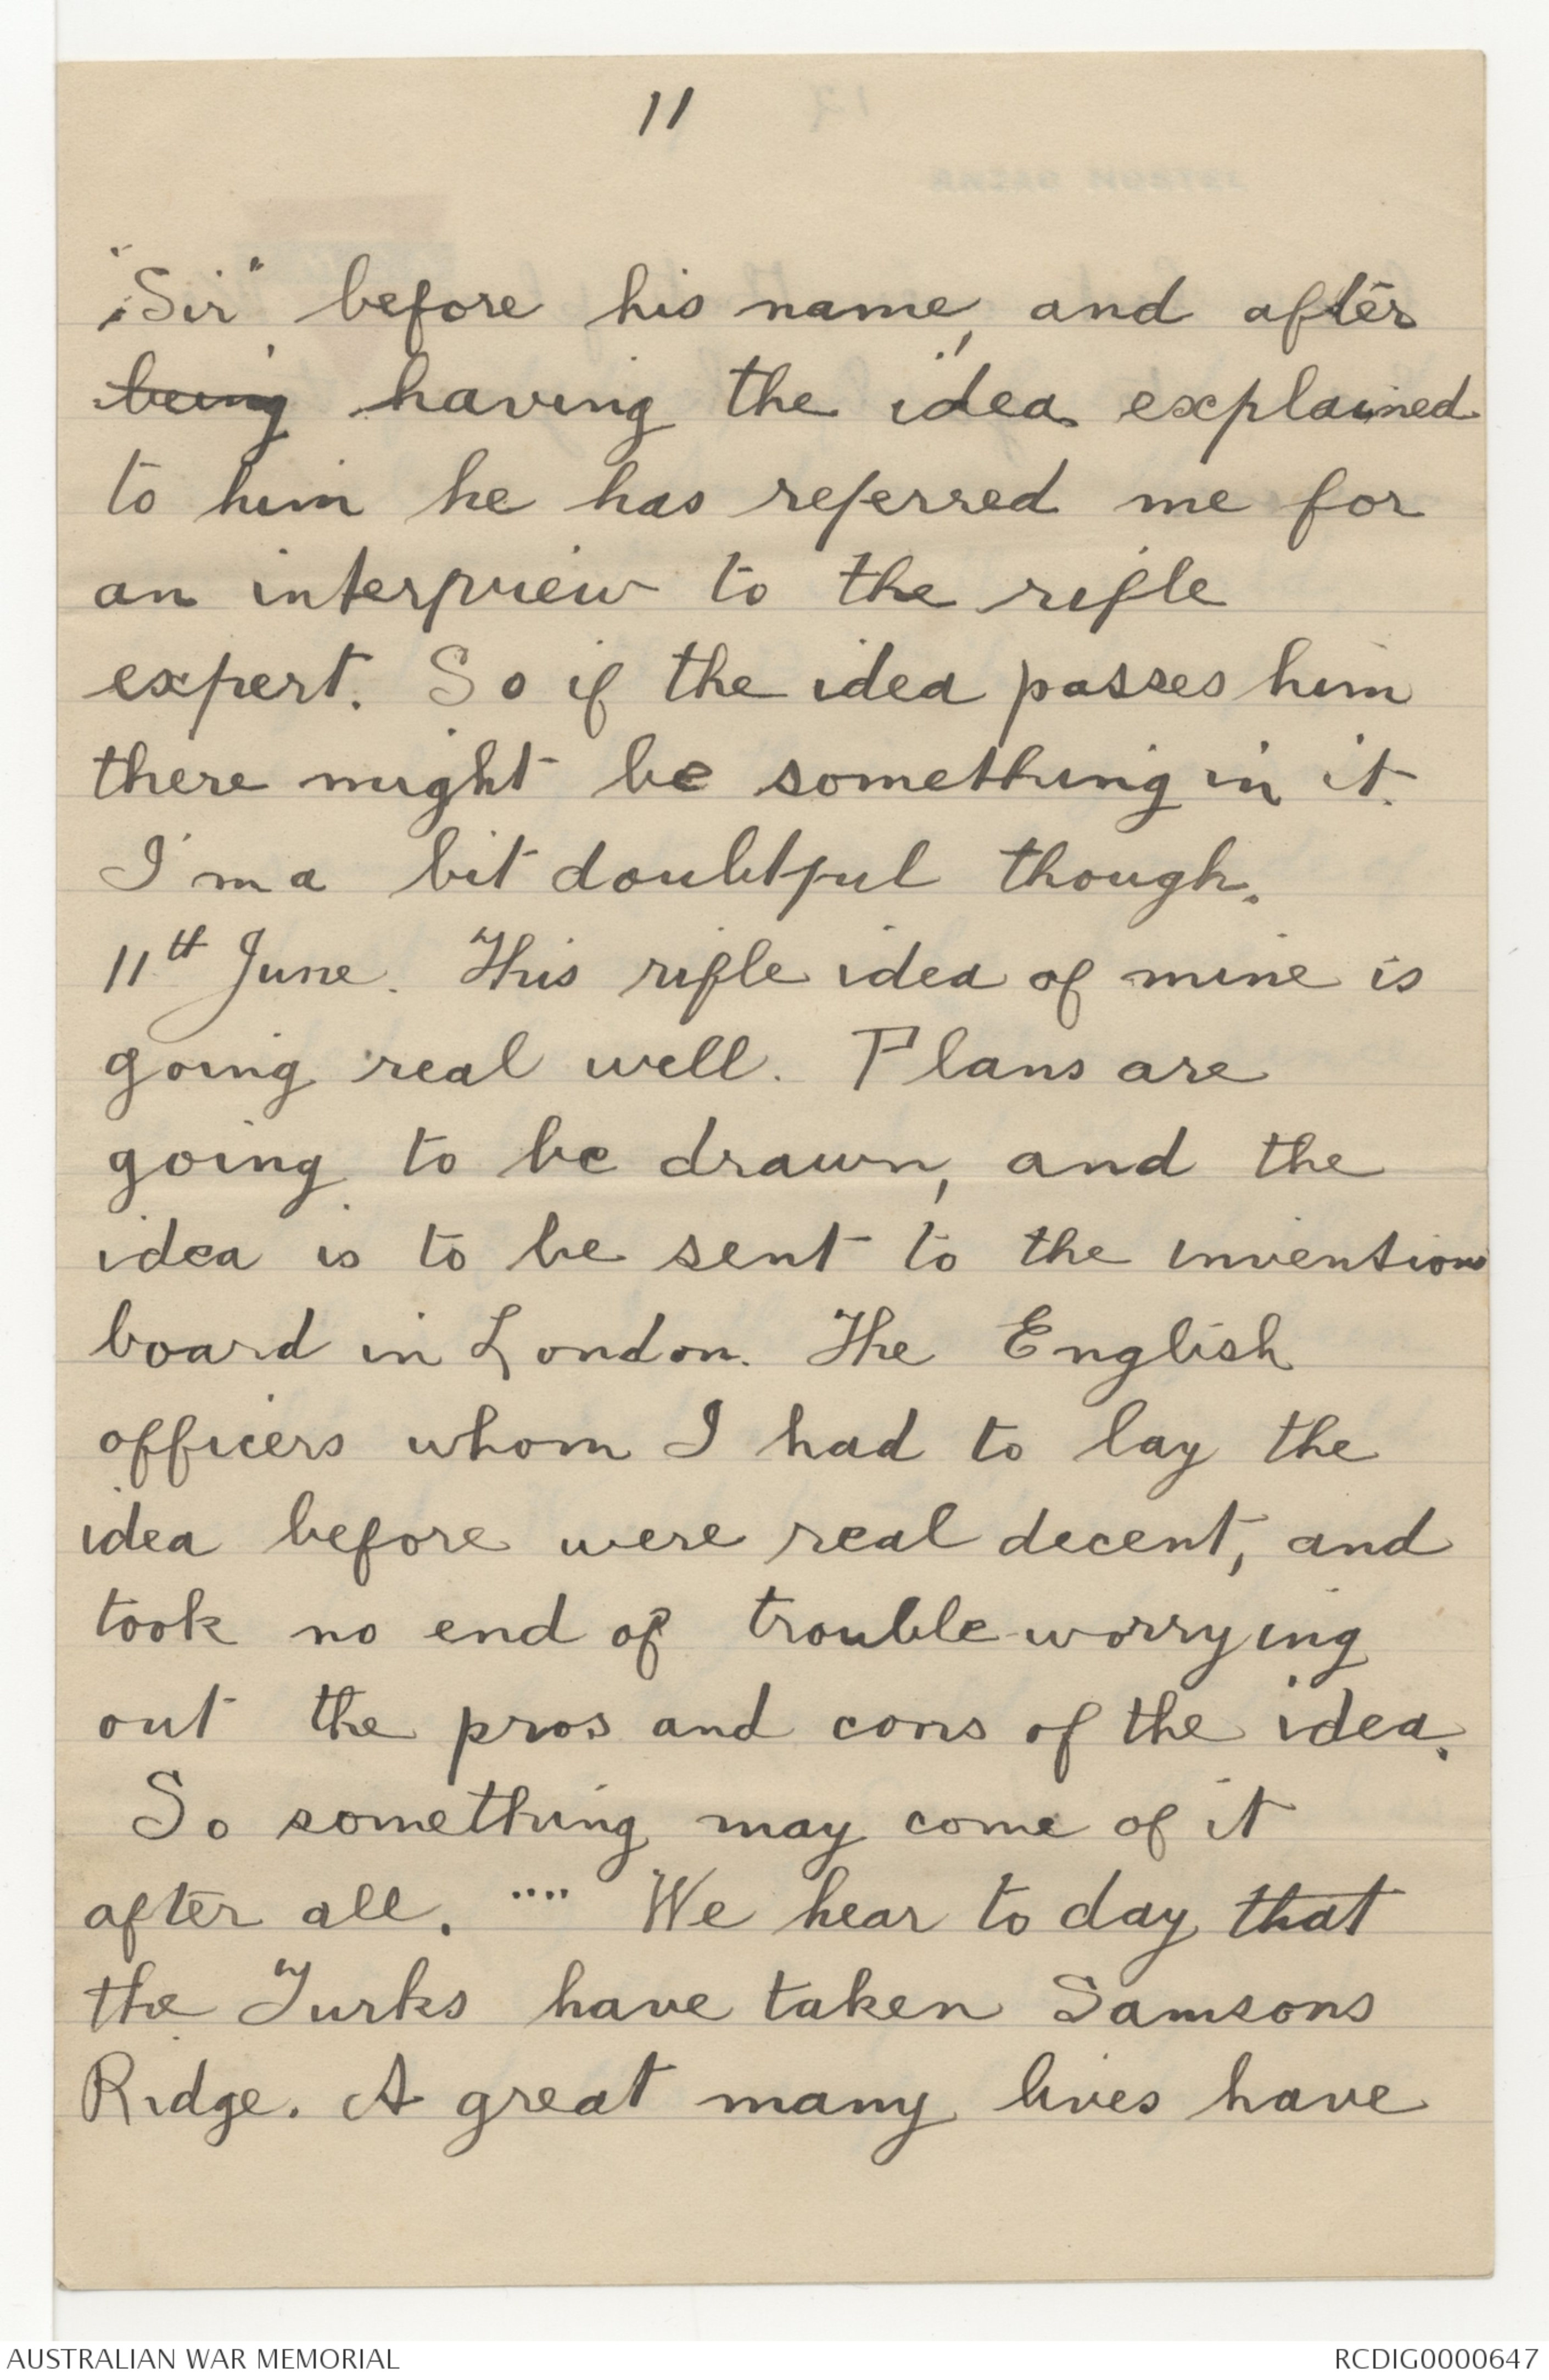 11
"Sir" before his name, and after
being having the idea explained
to him he has referred me for
an interview to the rifle
expert. So if the idea passes him
there might be something in it.
I'm a bit doubtful though.
11th June. This rifle idea of mine is
going real well. Plans are
going to be drawn, and the
idea is to be sent to the inventions
board in London. The English
officers whom I had to lay the
idea before were real decent, and
took no end of trouble worrying
out the pros and cons of the idea.
So something may come of it
after all. .... We hear to day that
the Turks have taken Samsons
Ridge. A great many lives have
AUSTRALIAN WAR MEMORIAL
RCDIG0000647